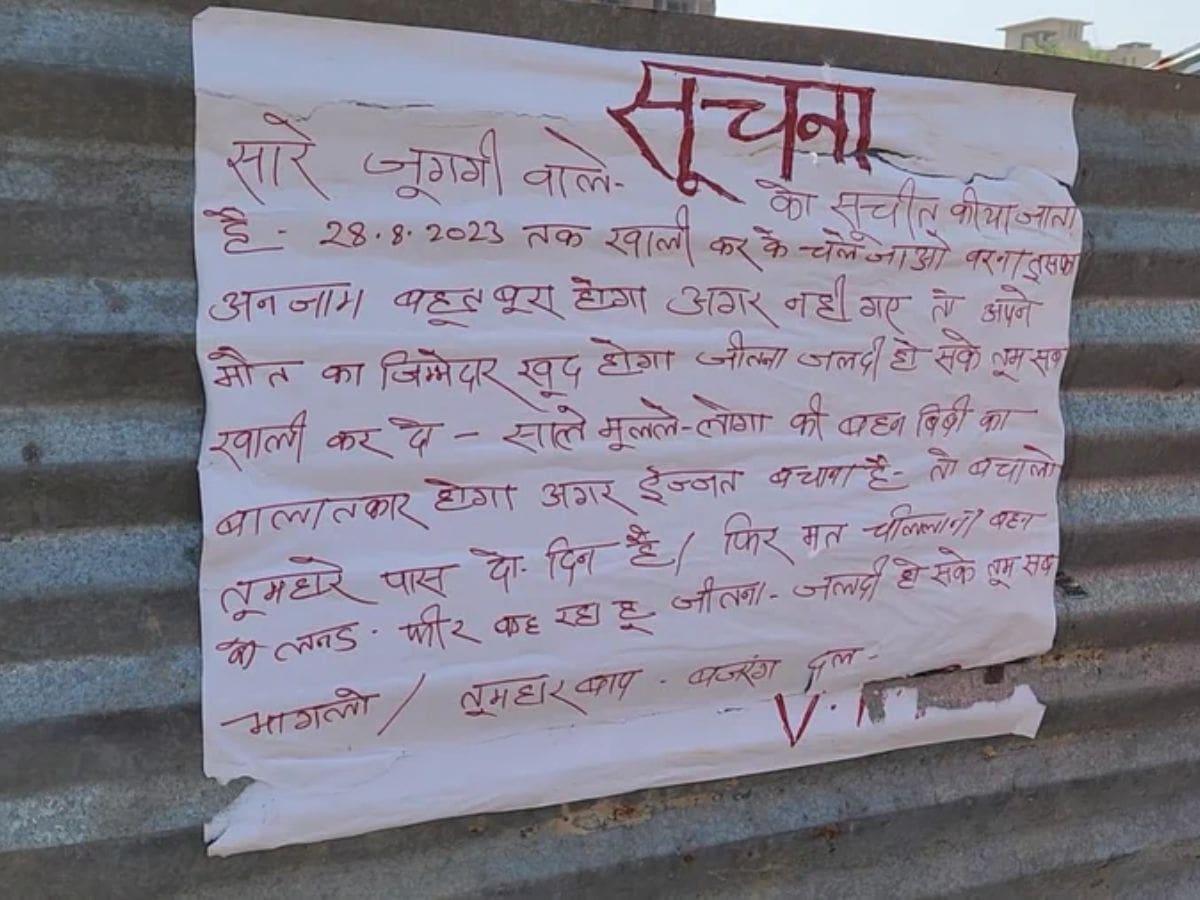 सूचना
सारे जूगगी वाले- को सूचीत कीया जाता
है- 28.8.2023 तक खाली कर के चले जाओ वरना इसका
अनजाम बहूत बूरा होगा अगर नही गए तो अपने
मौत का जिम्मेदार खूद होगा जीतना जलदी हो सके तूम सब
खाली कर दो - साले मूलले-लोगो की बहन बिबी का
बालातकार होगा अगर ईज्जत बचाना है- तो बचालो
तूमहारे पास दो- दिन है / फिर मत चीललाना बहन
के लनड. फीर कह रहा हू जीतना- जलदी हो सके तूम सब
भागलो / तूमहार बाप. बजरंग दल-
V.